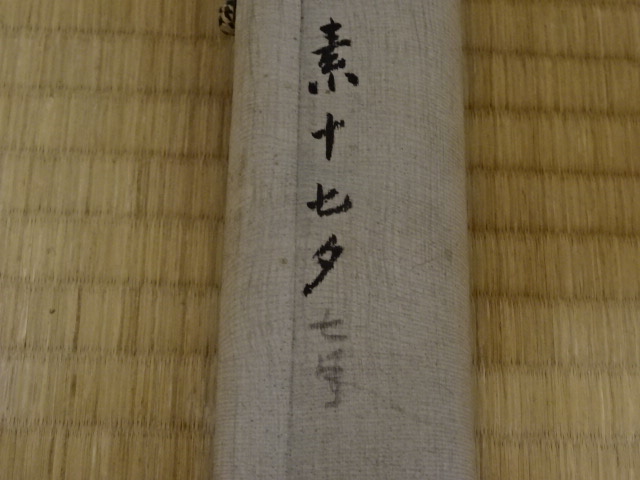 素十七夕
七号